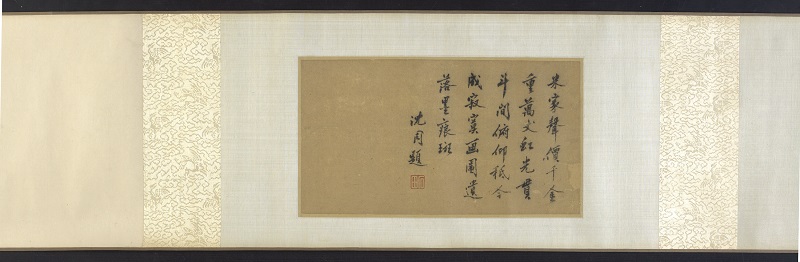 米家聲價千金
重萬丈虹光貫
斗間俯仰秪今
成寂寞画圖遺
落墨痕斑
沈周題